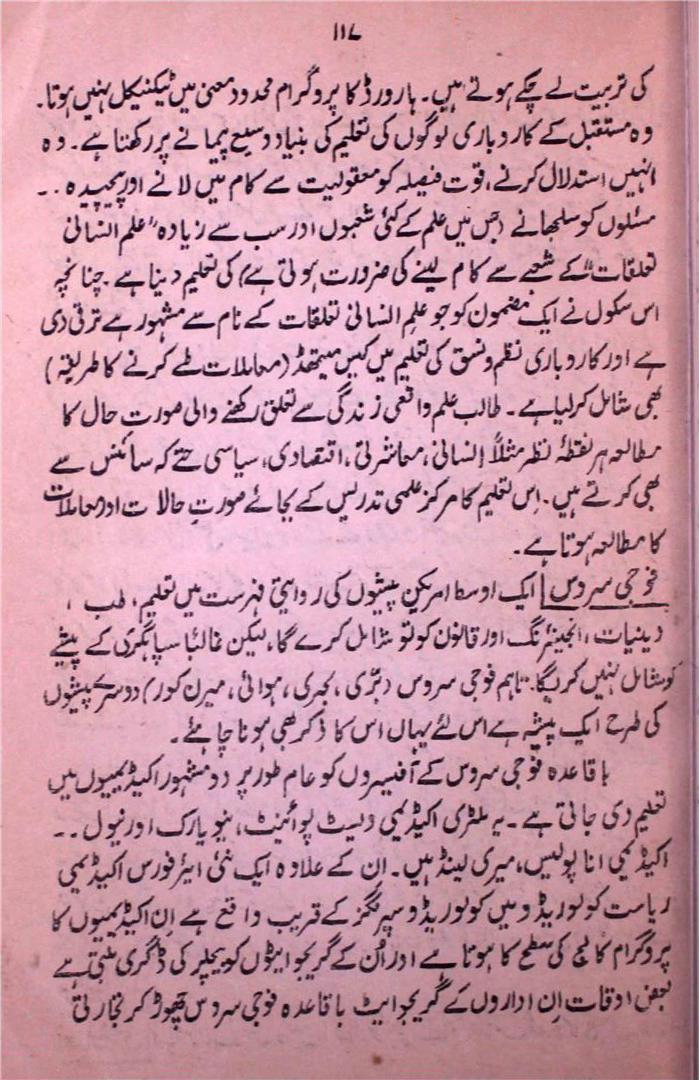 ۱۱۷
کی تربیت لے چکے ہوتے ہیں۔ ہارورڈ کا پروگرام محدود معنی میں ٹیکنیکل نہیں ہوتا۔
وہ مستقبل کے کاروباری لوگوں کی تعلیم کی بنیاد وسیع پیمانے پر رکھتا ہے۔ وہ
انہیں استدلال کرنے، قوت فیصلہ کو معقولیت سے کام میں لانے اور پیچیدہ ۔۔
مسئلوں کو سلجھانے (جس میں علم کے کئی شعبوں اور سب سے زیادہ "علم انسانی
تعلقات" کے شعبے سے کام لینے کی ضرورت ہوتی ہے) کی تعلیم دیتا ہے۔ چنانچہ
اس سکول نے ایک مضمون کو جو علم انسانی تعلقات کے نام سے مشہور ہے ترقی دی
ہے اور کاروباری نظم و نسق کی تعلیم میں کیس میتھڈ (معاملات طے کرنے کا طریقہ)
بھی شامل کرلیا ہے۔ طالب علم واقعی زندگی سے تعلق رکھنے والی صورت حال کا
مطالعہ ہر نقطۂ نظر مثلاً انسانی، معاشرتی، اقتصادی، سیاسی حتے کہ سائنس سے
بھی کرتے ہیں۔ اِس تعلیم کا مرکز علمی تدریس کے بجائے صورتِ حالات اور معاملات
کا مطالعہ ہوتا ہے۔
فوجی سروس | ایک اوسط امریکن پیشوں کی روایتی فہرست میں تعلیم، طب ،
دینیات، انجینئرنگ اور قانون کو تو شامل کرے گا، لیکن غالباً سپاہگری کے پیشے
کو شامل نہیں کریگا۔ تاہم فوجی سروس (بڑی، بحری، ہوائی، میرن کور) دوسرے پیشوں
کی طرح ایک پیشہ ہے اس لئے یہاں اس کا ذکر بھی ہونا چاہئے۔
باقاعدہ فوجی سروس کے آفیسروں کو عام طور پر دو مشہور اکیڈیمیوں میں
تعلیم دی جاتی ہے۔ یہ ملٹری اکیڈیمی ویسٹ پوائنٹ، نیویارک اور نیول ۔۔
اکیڈیمی اناپولیس، میری لینڈ ہیں۔ ان کے علاوہ ایک نئی ایئرفورس اکیڈیمی
ریاست کولوریڈو میں کولوریڈو سپرنگز کے قریب واقع ہے اِن اکیڈیمیوں کا
پروگرام کالج کی سطح کا ہوتا ہے اور اُن کے گریجوایٹوں کو بیچلر کی ڈگری ملتی ہے
بعض اوقات اِن اداروں کے گریجوایٹ باقاعدہ فوجی سروس چھوڑ کر تجارتی